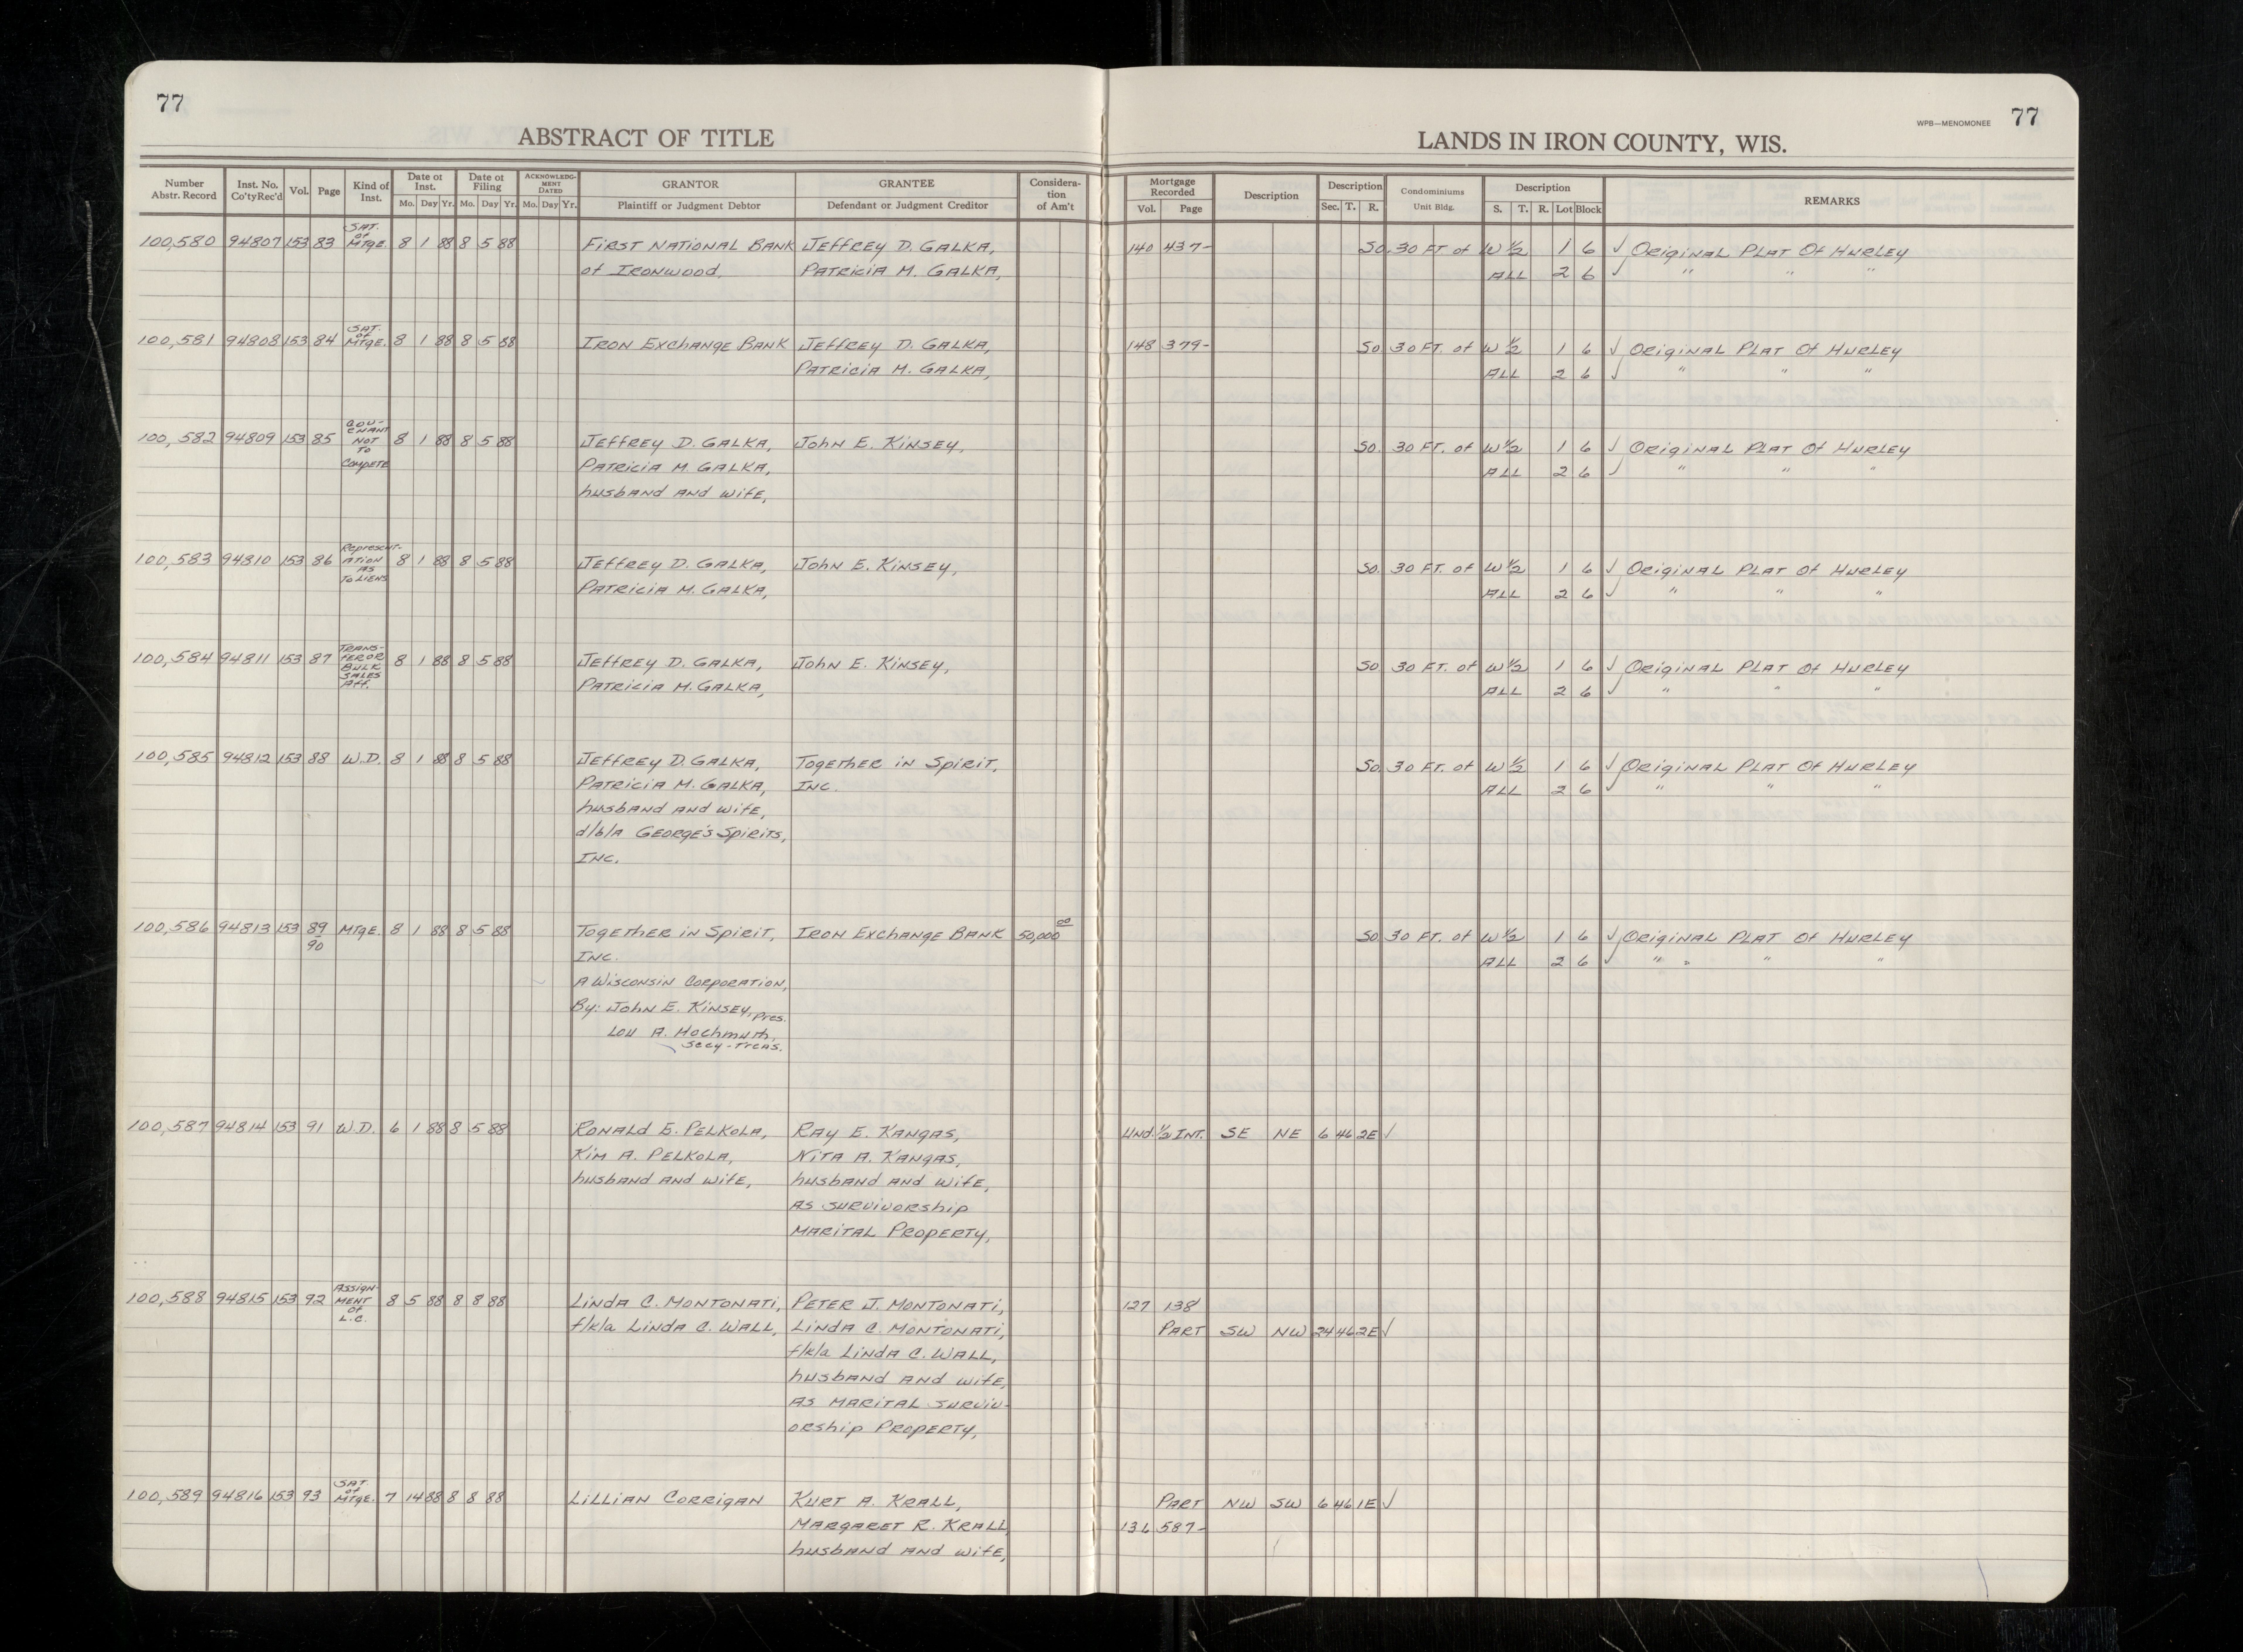 77
ABSTRACT OF TITLE
Number Abstr. Record Inst. No. Co'tyRec'd Vol. Page Kind of Inst. Date of Inst. Mo. Day Yr. Date of Filing Mo. Day Yr. ACKNOWLEDG-MENT DATED Mo. Day Yr. GRANTOR Plaintiff or Judgment Debtor GRANTEE Defendant or Judgment Creditor Considera-tion of Am't
WPB—MENOMONEE 77
LANDS IN IRON COUNTY, WIS.
Mortgage Recorded Vol. Page Description Description Sec. T. R. Condominiums Unit Bldg. Description S. T. R. Lot Block REMARKS
100,580 94807 153 83 SAT. of MTGE. 8 1 88 8 5 88 FIRST NATIONAL BANK JEFFREY D. GALKA, 140 437- SO. 30 FT. of W 1/2 1 6 ✓ ORIGINAL PLAT Of HURLEY
of IRONWOOD, PATRICIA M. GALKA, ALL 2 6 ✓ " " "
100,581 94808 153 84 SAT. of MTGE. 8 1 88 8 5 88 IRON EXCHANGE BANK JEFFREY D. GALKA, 148 379- SO 30 FT. of W 1/2 1 6 ✓ ORIGINAL PLAT Of HURLEY
PATRICIA M. GALKA, ALL 2 6 ✓ " " "
100,582 94809 153 85 COV-ENANT NOT TO COMPETE 8 1 88 8 5 88 JEFFREY D. GALKA, JOHN E. KINSEY, SO. 30 FT. of W 1/2 1 6 ✓ ORIGINAL PLAT Of HURLEY
PATRICIA M. GALKA, ALL 2 6 ✓ " " "
husband AND wife,
100,583 94810 153 86 Represent-ATION AS To LIENS 8 1 88 8 5 88 JEFFREY D. GALKA, JOHN E. KINSEY, SO. 30 FT. of W 1/2 1 6 ✓ ORIGINAL PLAT Of HURLEY
PATRICIA M. GALKA, ALL 2 6 ✓ " " "
100,584 94811 153 87 TRANS-FEROR BULK SALES Aff. 8 1 88 8 5 88 JEFFREY D. GALKA, JOHN E. KINSEY, SO 30 FT. of W 1/2 1 6 ✓ ORIGINAL PLAT Of HURLEY
PATRICIA M. GALKA, ALL 2 6 ✓ " " "
100,585 94812 153 88 W.D. 8 1 88 8 5 88 JEFFREY D. GALKA, TOGETHER IN SPIRIT, SO 30 FT. of W 1/2 1 6 ✓ ORIGINAL PLAT Of HURLEY
PATRICIA M. GALKA, INC. ALL 2 6 ✓ " " "
husband AND wife,
d/b/A GEORGE'S SPIRITS,
INC.
100,586 94813 153 89 90 MTGE. 8 1 88 8 5 88 TOGETHER IN SPIRIT, IRON EXCHANGE BANK 50,000 00 SO 30 FT. of W 1/2 1 6 ✓ ORIGINAL PLAT Of HURLEY
INC. ALL 2 6 ✓ " " " "
A WISCONSIN CORPORATION,
By: JOHN E. KINSEY, Pres.
LOU A. Hochmuth,
Secy-Treas.
100,587 94814 153 91 W.D. 6 1 88 8 5 88 RONALD E. PELKOLA, RAY E. KANGAS, Und. 1/2 INT. SE NE 6 46 2E ✓
KIM A. PELKOLA, NITA A. KANGAS,
husband AND wife, husband AND wife,
AS SURVIVORSHIP
MARITAL PROPERTY,
100,588 94815 153 92 ASSIGN-MENT Of L.C. 8 5 88 8 8 88 LINDA C. MONTONATI, PETER J. MONTONATI, 127 138
f/k/a LINDA C. WALL, LINDA C. MONTONATI, PART SW NW 24 46 2E ✓
f/k/a LINDA C. WALL,
husband AND wife,
AS MARITAL SURVIV-
ORSHIP PROPERTY,
100,589 94816 153 93 SAT of MTGE. 7 14 88 8 8 88 LILLIAN CORRIGAN KURT A. KRALL, PART NW SW 6 46 1E ✓
MARGARET R. KRALL, 136 587-
husband AND wife,